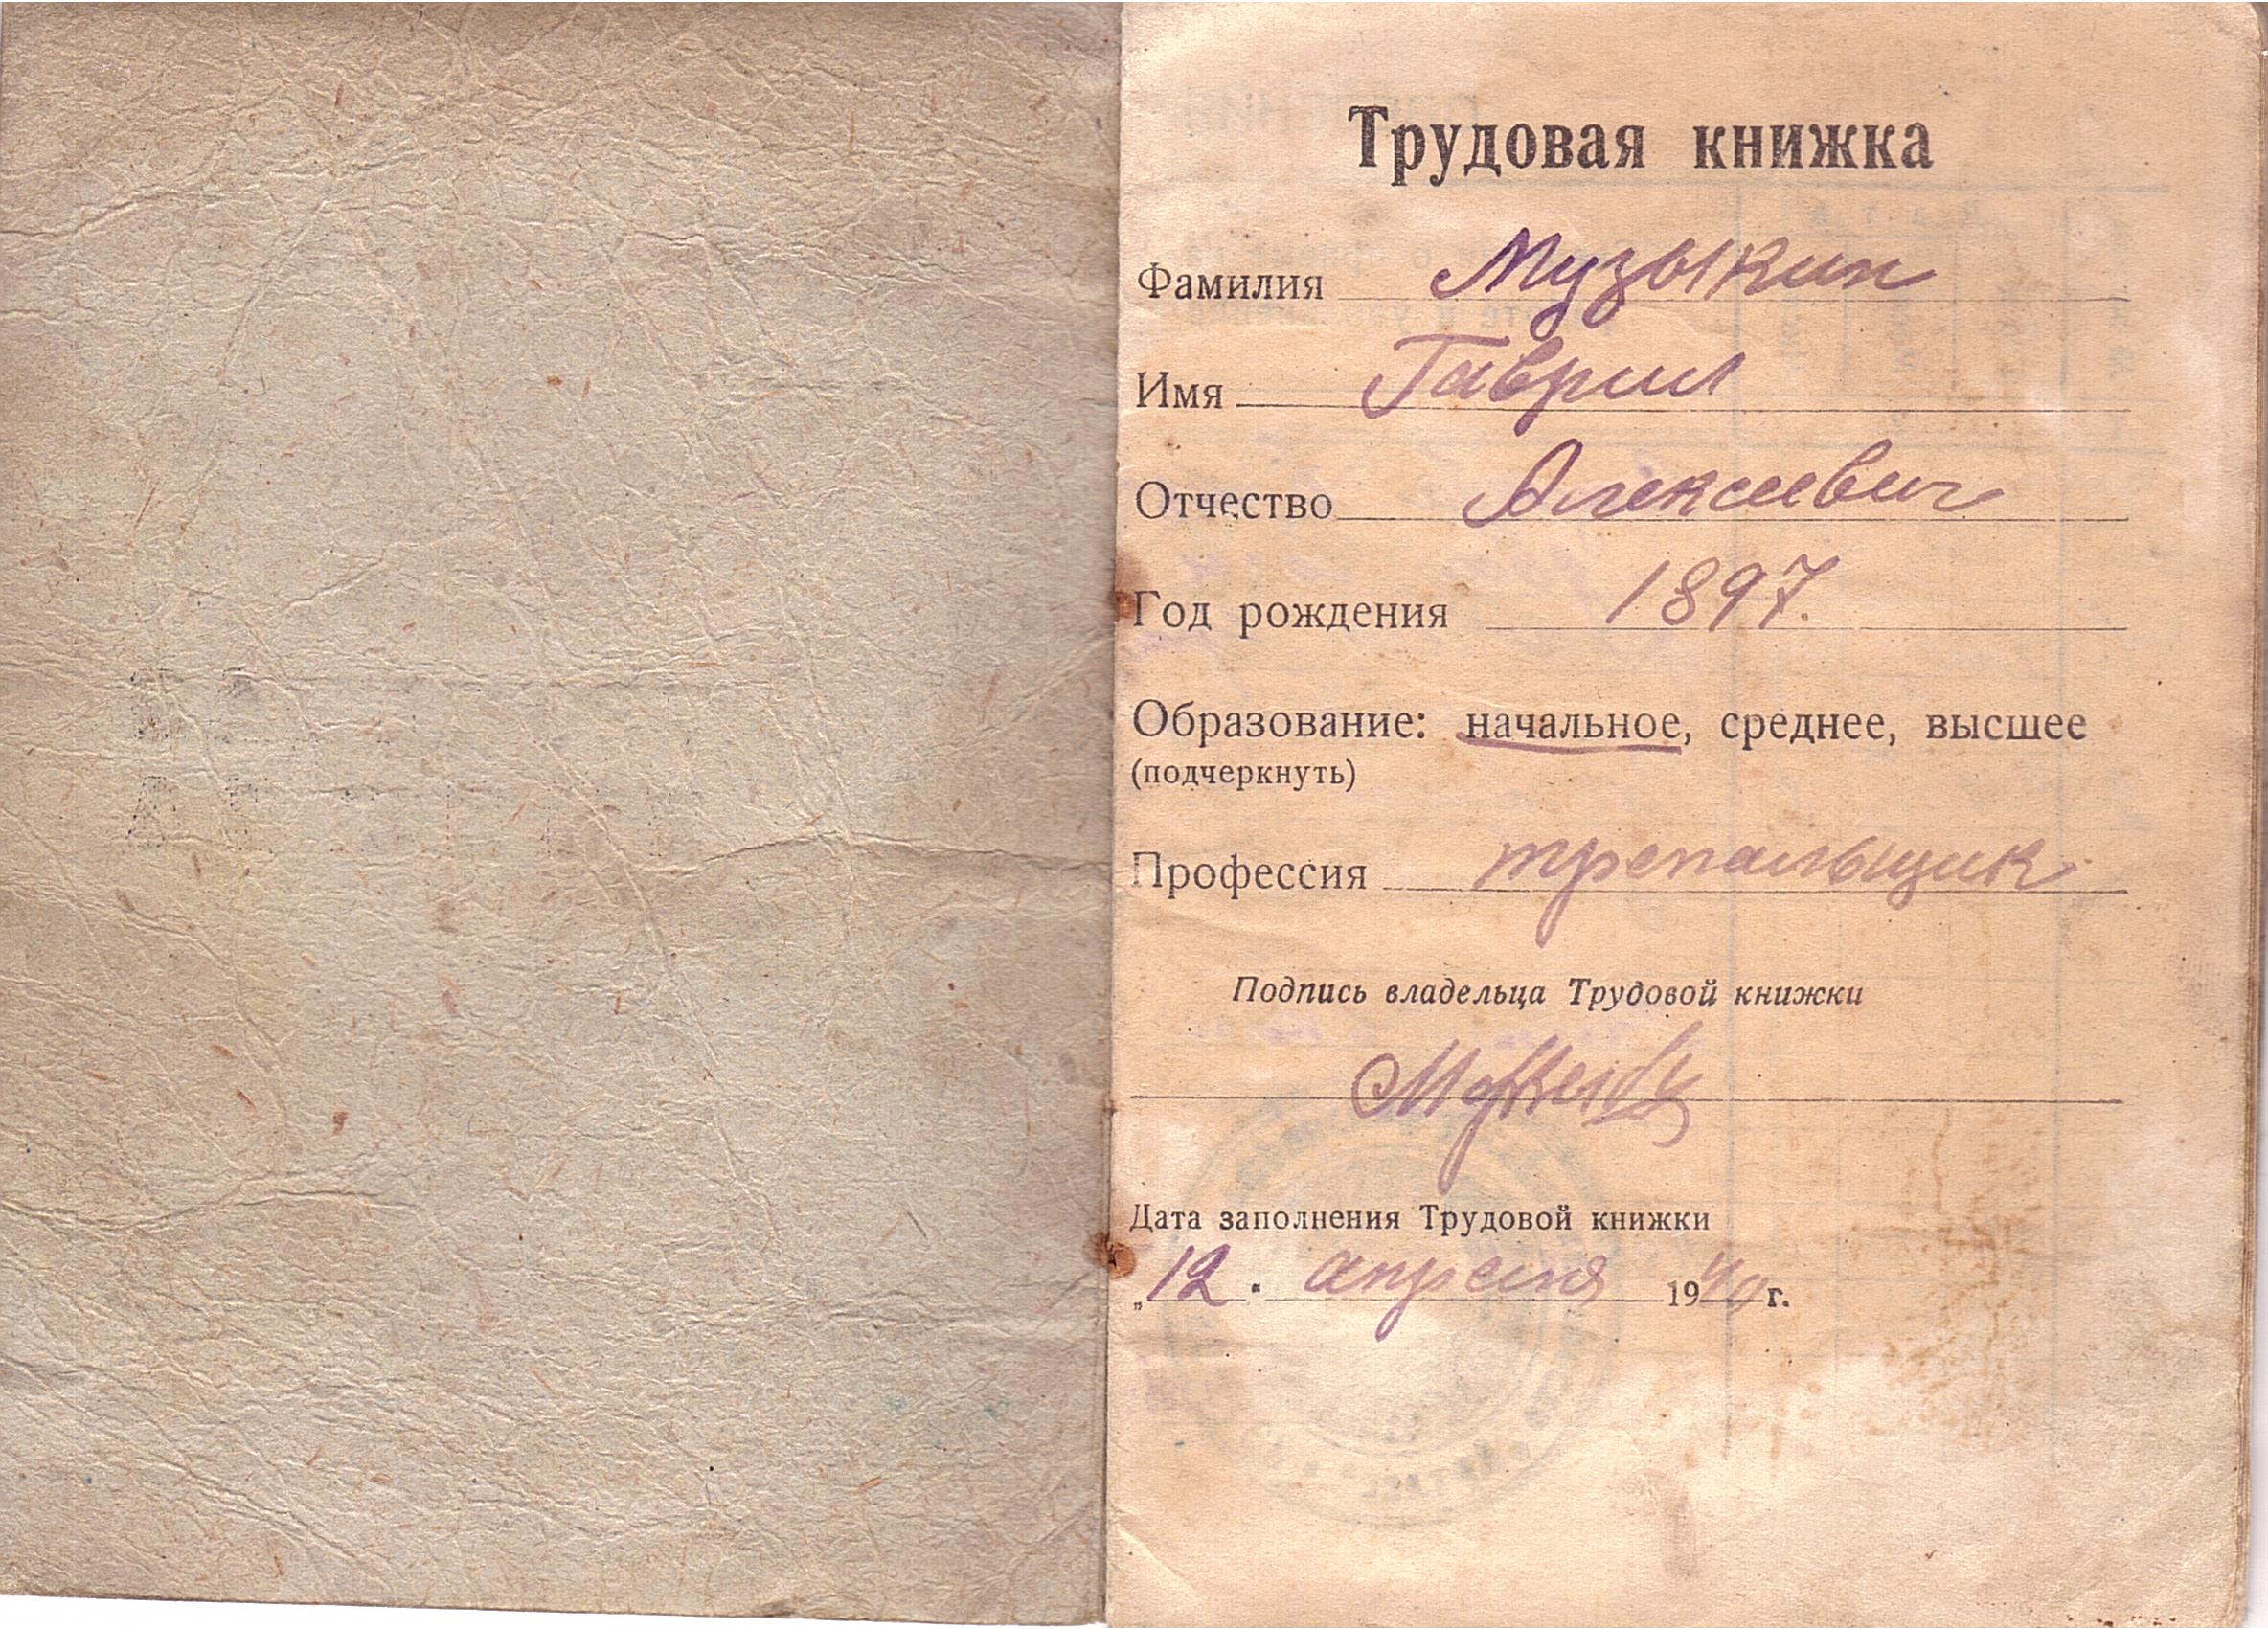 Трудовая книжка
Фамилия Музыкин
Имя Гаврил
Отчество Алексеевич
Год рождения 1897.
Образование: начальное, среднее, высшее
(подчеркнуть)
Профессия трепальщик
Подпись владельца Трудовой книжки
Дата заполнения Трудовой книжки
„12" апреля 1940 г.